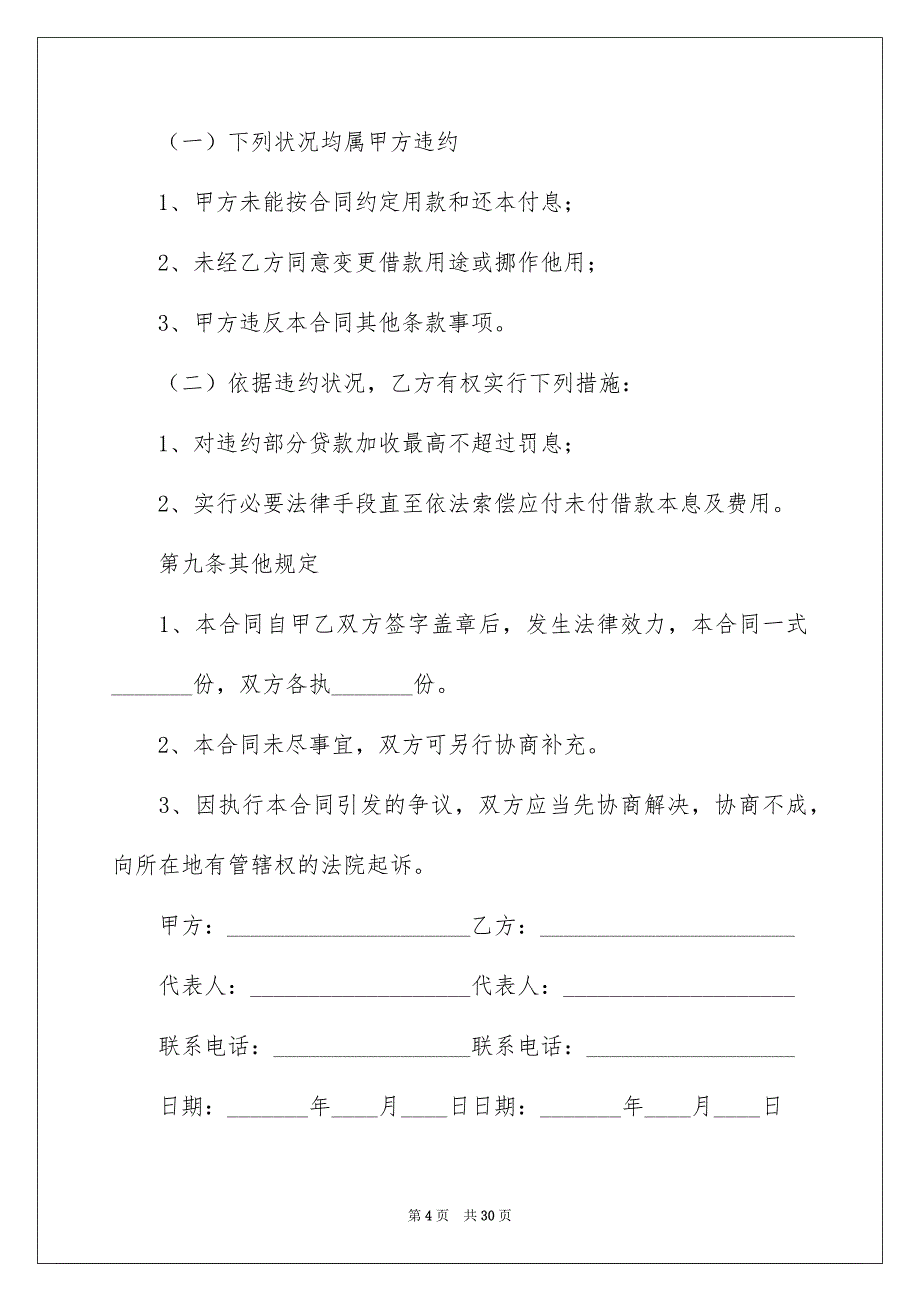 （一）下列状况均属甲方违约
1、甲方未能按合同约定用款和还本付息；
2、未经乙方同意变更借款用途或挪作他用；
3、甲方违反本合同其他条款事项。
（二）依据违约状况，乙方有权实行下列措施：
1、对违约部分贷款加收最高不超过罚息；
2、实行必要法律手段直至依法索偿应付未付借款本息及费用。
第九条其他规定
1、本合同自甲乙双方签字盖章后，发生法律效力，本合同一式
_______份，双方各执_______份。
2、本合同未尽事宜，双方可另行协商补充。
3、因执行本合同引发的争议，双方应当先协商解决，协商不成，
向所在地有管辖权的法院起诉。
甲方：_____________________乙方：______________________
代表人：___________________代表人：____________________
联系电话：_________________联系电话：__________________
日期：_______年____月____日日期：_______年____月____日
第 4 页 共 30 页